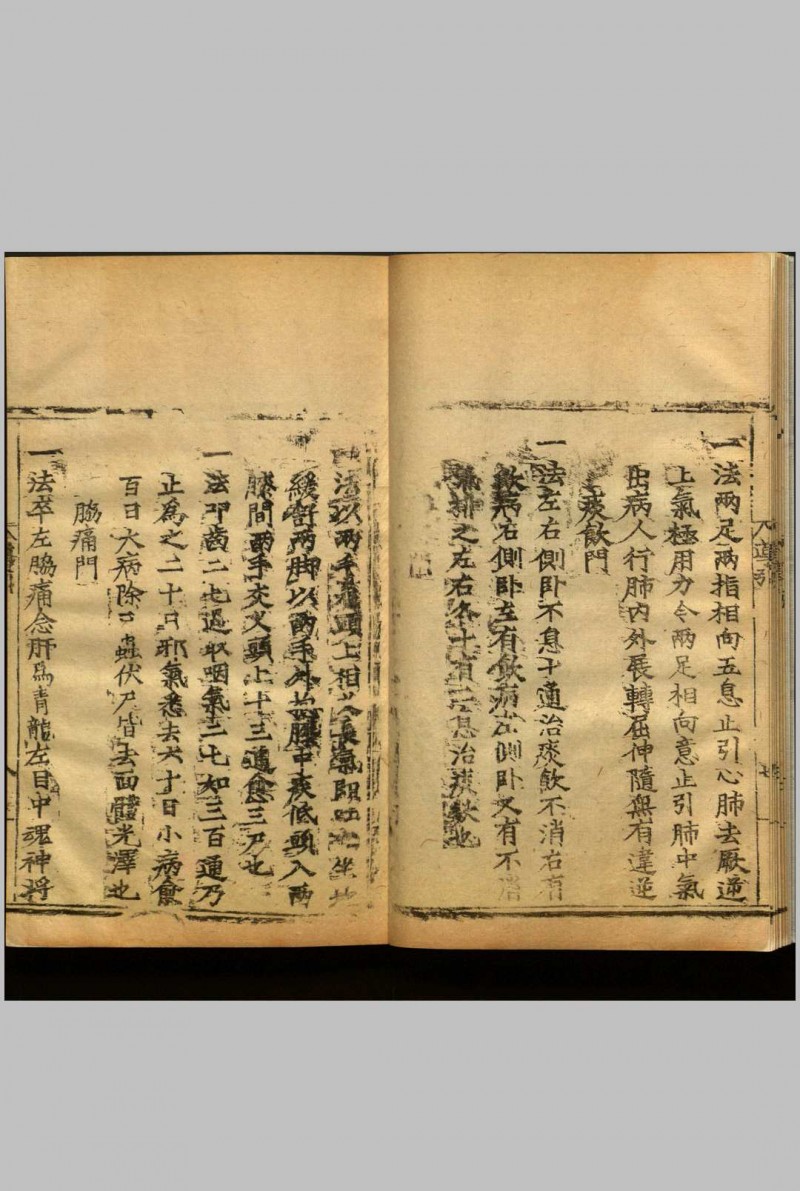 一法兩足兩指相向五息止引心肺去厥逆
上氣極用力令兩足相向意止引肺中氣
出病人行肺內外展轉屈伸隨無有違逆
痰飲門
一法左右側卧不息十通治痰飲不消右有
飲病右側卧左有飲病左側卧又有不
排之左右各十有二息治痰飲也
法以兩手著頭上相叉長氣即吐坐地
緩舒兩脚以兩手外抱膝中疾低頭入兩
膝間兩手交叉頭上十三通愈三尸也
一法叩齒二七過取咽氣二七如三百通乃
止為之二十日邪氣悉去六十日小病愈
百日大病除三蟲伏尸皆去面體光澤也
脇痛門
一法卒左脇痛念肝為青龍左目中魂神將